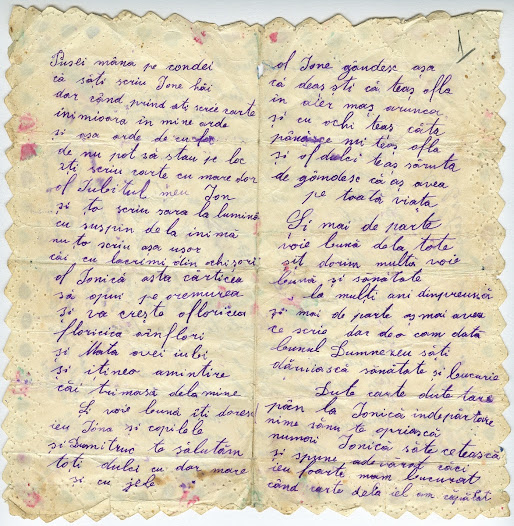 Pusei mâna pe condei
că săti scriu Ione hăi
dar când prind ati scrie carte
inimioara in mine arde
și asa arde de cu foc
de nu pot să stau pe loc
ati scriu carte cu mare dor
of Iubeitul meu Ion
și to scriu sara la lumină
cu suspin de la inimă
nu to scriu asa usor
căi cu lacrimi din ochișori
of Ionică asta cărticea
să opui pe oremurea
și va crește ofloricea
floricica
și Mata ovei iubi
și itineo amintire
căi trimasă dela mine
Și voie bună iti doresc
ieu Iona și copilele
și Dumitruc te sălutăm
toti dulci cu dor mare
si cu jele
1
of Ione găndesc asa
că deas ști că teaș ofla
in aier maș arunca
și cu ochi teaș căta
pănăce nu teaș ofla
și of dulci teaș săruta
de găndesc că aș avea
pe toată viata
Și mai de parte
voie bună dela tote
sit dorim multă voie
bună și sănătate
la multi ani dinpreună
și mai de parte aș mai avea
ce scrie dar deo cam data
bunul Dumnezeu săti
dăruiască sănătate și bucurie
Dute carte dute tare
păn la Ionică indepărtare
nime sănu te opriască
numai Ionică săte cetească
si spune adevarat căci
ieu foarte mam bucurat
când carte dela iel am capătat